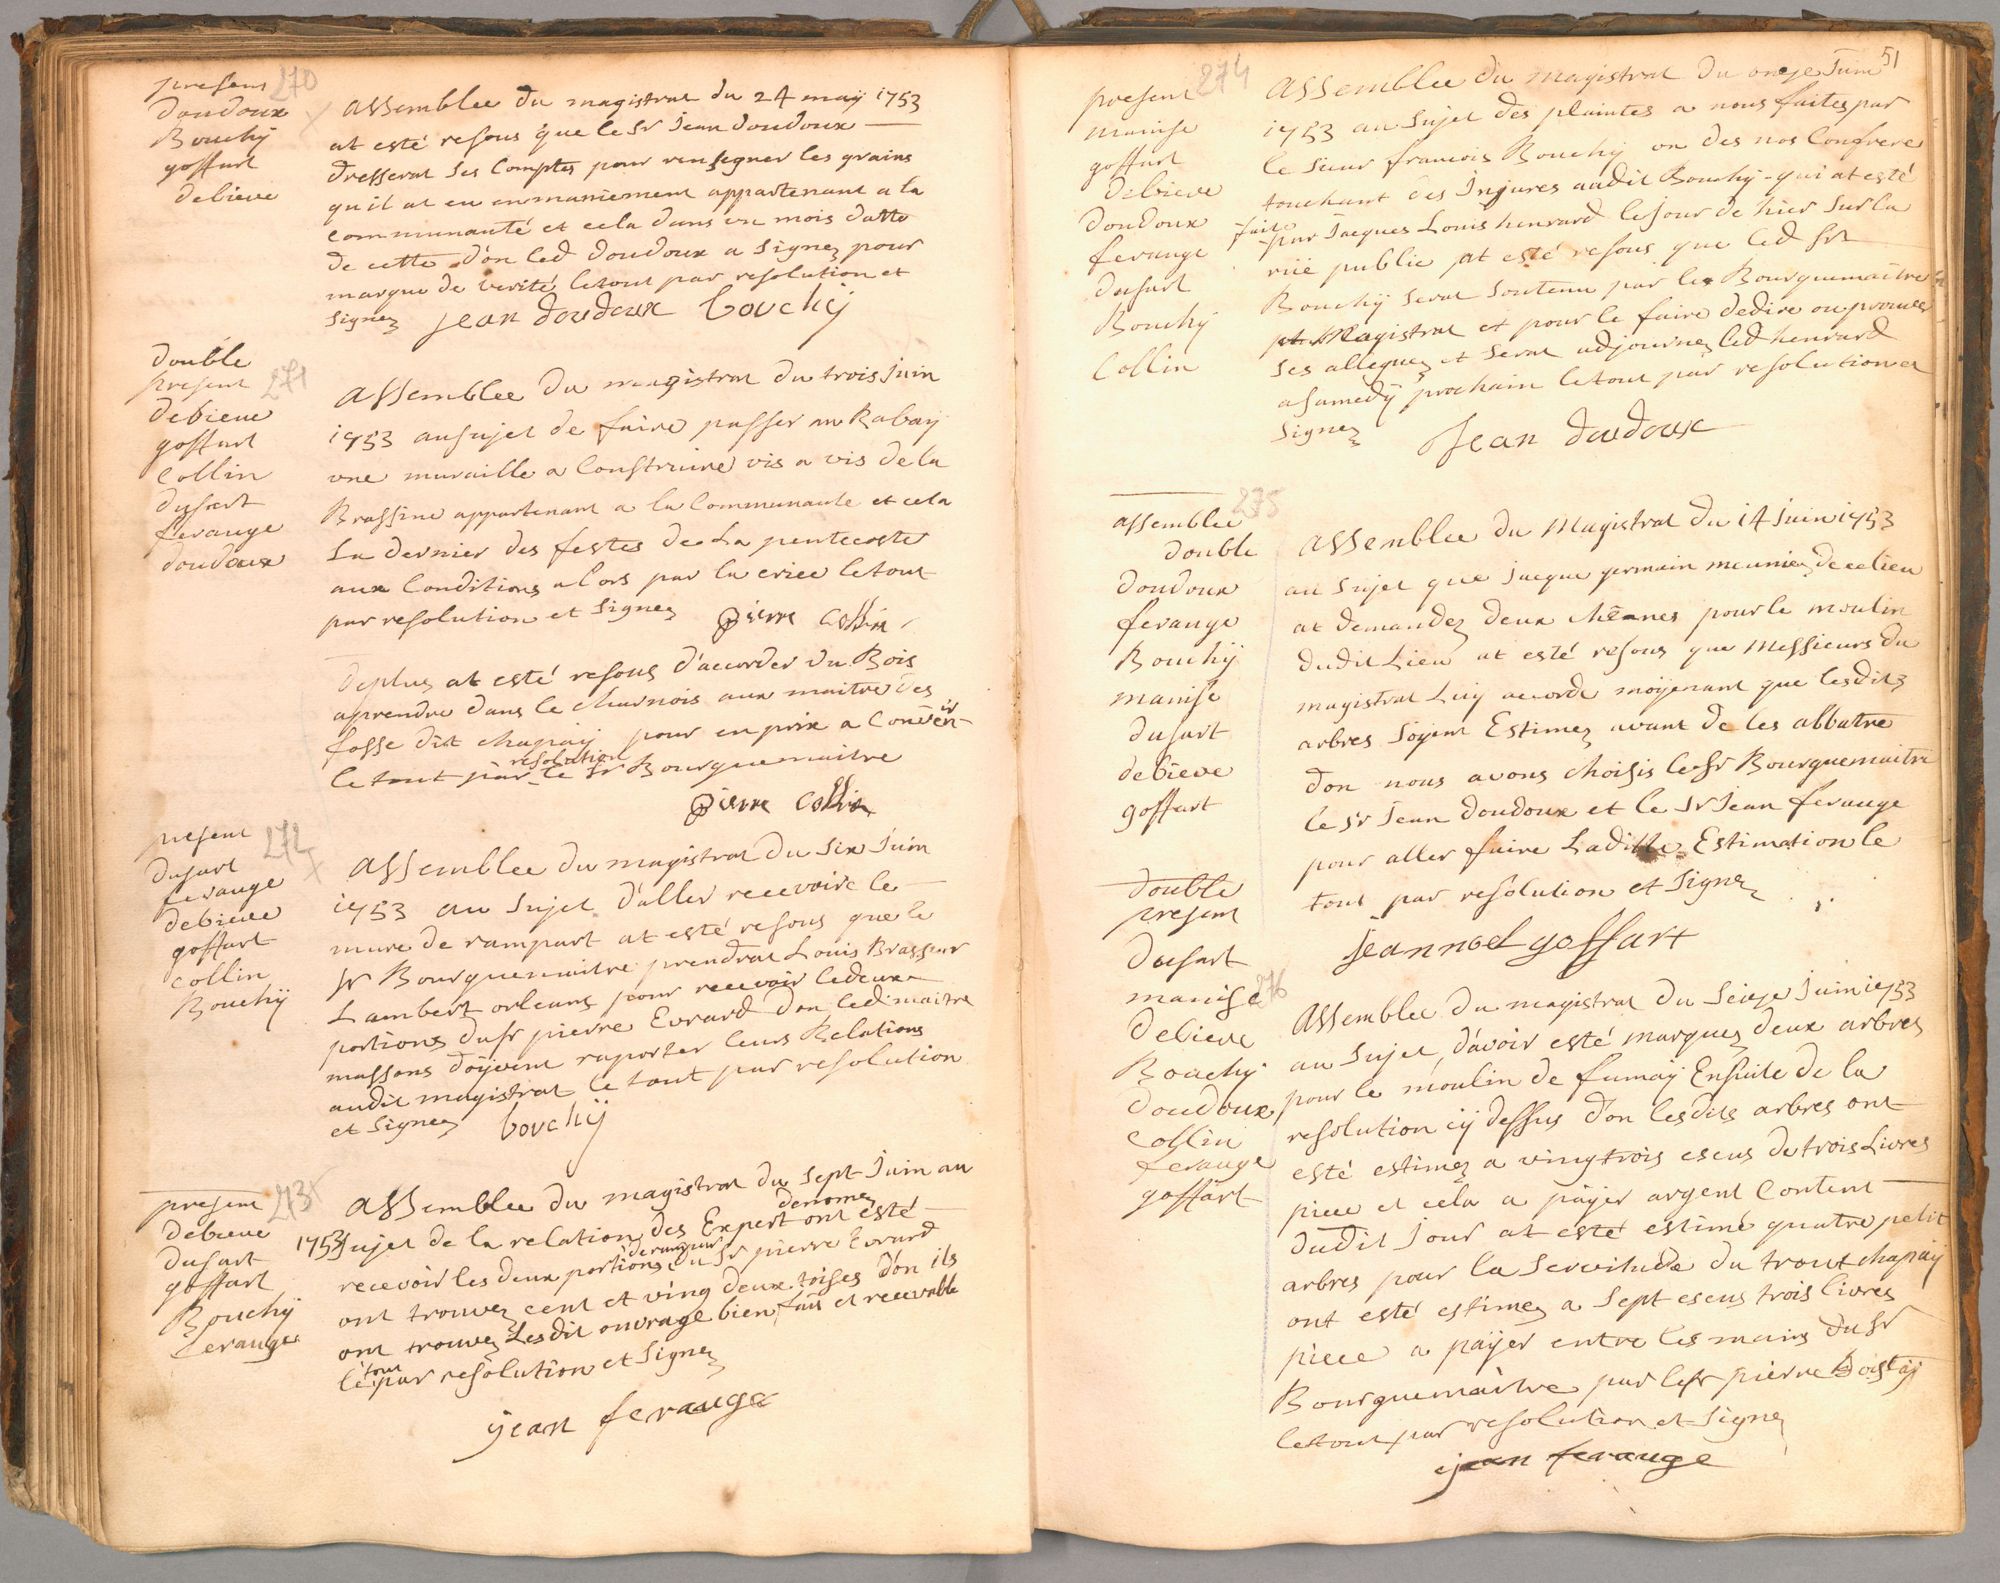 presens 270
doudoux
Bouchÿ
goffart
debieve
assemblee du magistrat du 24 maÿ 1753
at esté resous que le Sr Jean doudoux
dresserat ses Comptes pour renseigner les grains
qu il at eu en maniement appartenant a la
communauté et cela dans un mois datte
de cette d'on led doudoux a Signez pour
marque de verité le tout par resolution et
Signez Jean doudoux bouchÿ
double
present 271
debieve
goffart
Collin
dusart
ferauge
doudoux
assemblee du magistrat du trois Juin
1753 au sujet de faire passer au Rabaÿ
une muraille a Construire vis a vis de la
Brassine appartenant a la Communaute et cela
La dernier des festes de La pentecoste
aux Conditions alors par la criee le tout
par resolution et Signez pierre Collin
deplus at esté resous d'accorder du Bois
aprendre dans le charnois aux maitre des
fosse dit chapaÿ pour en prix a Convenir
resolution
le tout par le Sr Bourguemaitre
pierre Collin
present 272
dusart
ferauge
debieve
goffart
collin
Bouchÿ
assemblee du magistrat du Six Juin
1753 au Sujet d'aller recevoire le
mure de rampart at esté resous que le
Sr Bourguemaitre prendrat Louis Brasseur
Lambert orleans pour recevoir le deux
portions du Sr pierre Evrard don led maitre
massons doÿvent raporter leurs Relations
audit magistrat le tout par resolution
et Signez bouchÿ
present 273
debieve
dusart
goffart
Bouchÿ
ferauge
assemblee du magistrat du Sept Juin au
denomez
1753 Sujet de la relation des Expert ont esté
de rampar
recevoir les deux portions du Sr pierre Evrard
ont trouvez cent et ving deux toises d'on ils
ont trouvez Lesdit ouvrage bien fait et recevable
tout
le par resolution et Signez
jean ferauge
51
present 274
manise
goffart
debieve
doudoux
ferauge
dusart
Bouchÿ
Collin
assemblee du magistrat du onze Juin
1753 au Sujet des plaintes a nous faites par
le Sieur francois Bouchÿ on des nos Confrere
touchant des Injures audit Bouchÿ qui at esté
faite par Jacques Louis henrard le jour de hier Sur la
riie publie at esté resous que led Sr
Bouchÿ Serat Soutenu par le Bourguemaitre
et Magistrat et pour le faire dedire ou prouver
Ses alleguez et Serat adjournez led henrard
a Samedÿ prochain le tout par resolution et
Signez Jean doudoux
assemblee 275
double
doudoux
ferauge
Bouchÿ
manise
dusart
debieve
goffart
assemblee du Magistrat du 14 Juin 1753
au Sujet que jacque germain meuniez de ce lieu
at demandez deux chênes pour le moulin
dudit Lieu at esté resous que Messieurs du
magistrat Luÿ accorde moÿenant que lesdits
arbres Soÿent Estimez avant de les abbatre
d'on nous avons choisis le Sr Bourguemaitre
le Sr Jean doudoux et le Sr Jean ferauge
pour aller faire Laditte Estimation le
tous par resolution et Signez
jean noel goffart
double
present
dusart
manise 276
debieve
Bouchÿ
doudoux
Collin
ferauge
goffart
assemblee du magistrat du Seize Juin 1753
au Sujet d'avoir esté marquez deux arbres
pour le moulin de fumaÿ Ensuite de la
resolution cÿ dessus d'on lesdits arbres ont
esté estimez a vingtrois escus de trois Livres
piece et cela a päÿer argent Content
dudit Jour at esté estimé quatre petit
arbres pour la Servitude du trout chapaÿ
ont esté estimez a Sept escus trois livres
piece a päÿer entre les mains du Sr
Bourguemaitre par le Sr pierre
le tout par resolution et Signez
jean ferauge